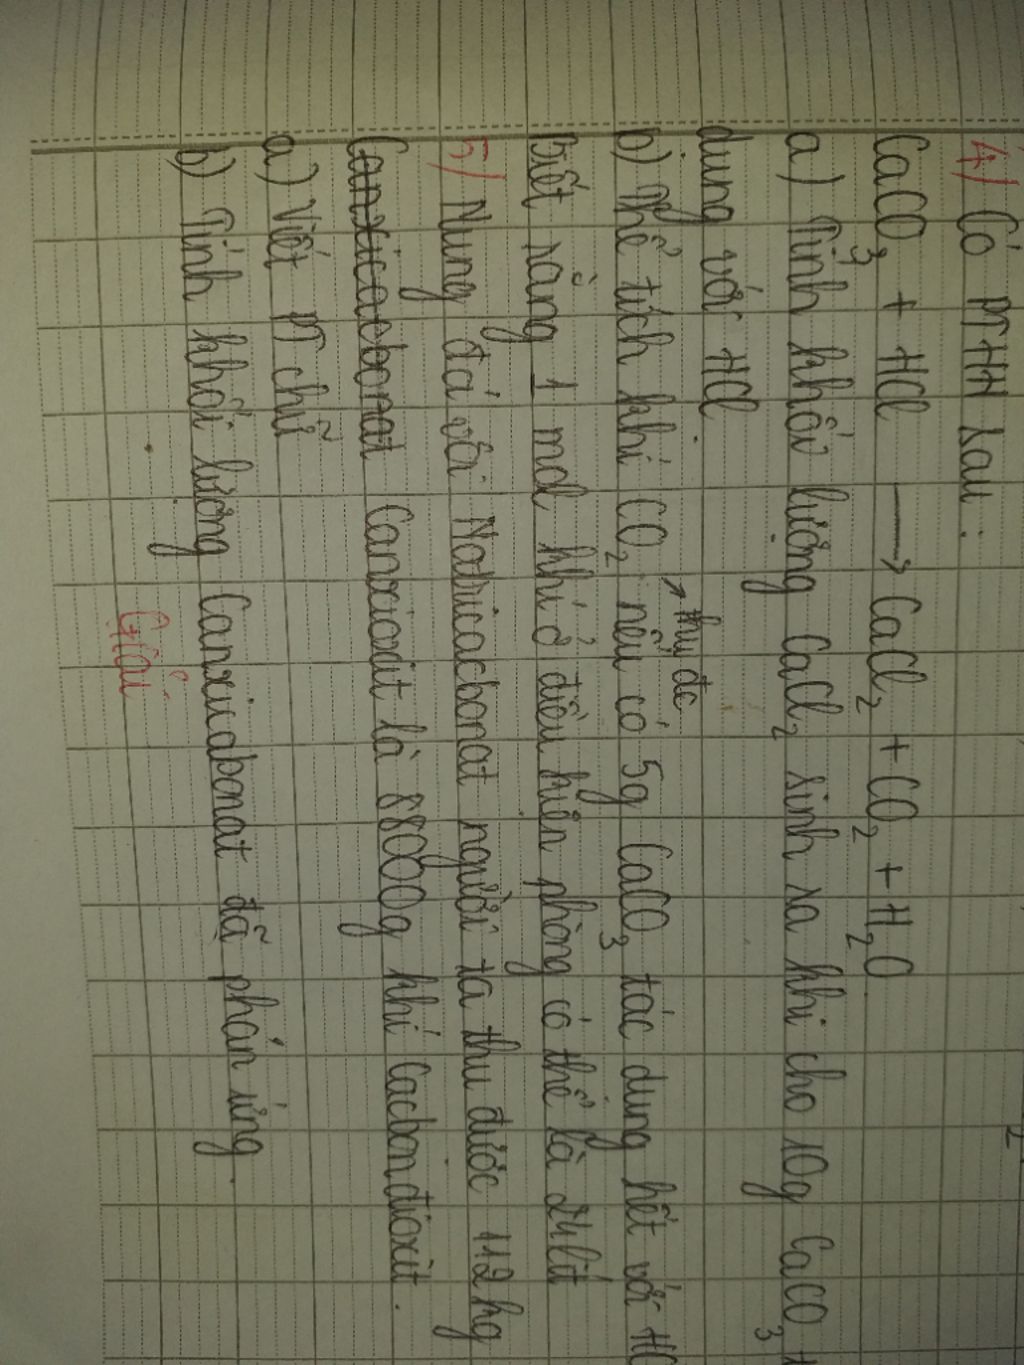 4/ Có PTHH sau:
CaCO3 + HCl → CaCl2 + CO2 + H2O
a) Tính khối lượng CaCl2 sinh ra khi cho 10g CaCO3
dung với HCl
→ thu đc
b) Thể tích khí CO2 nếu có 5g CaCO3 tác dung hết với HCl
Biết rằng 1 mol khí ở điều kiên phòng có thể là 24 lít
5/ Nung đá vôi Natricacbonat người ta thu được 112 kg
Canxicacbonat Canxioxit là 88000g khí Cacbonđioxit.
a) Viết PT chữ
b) Tính khối lương Canxicabonat đã phản ứng.
Giải